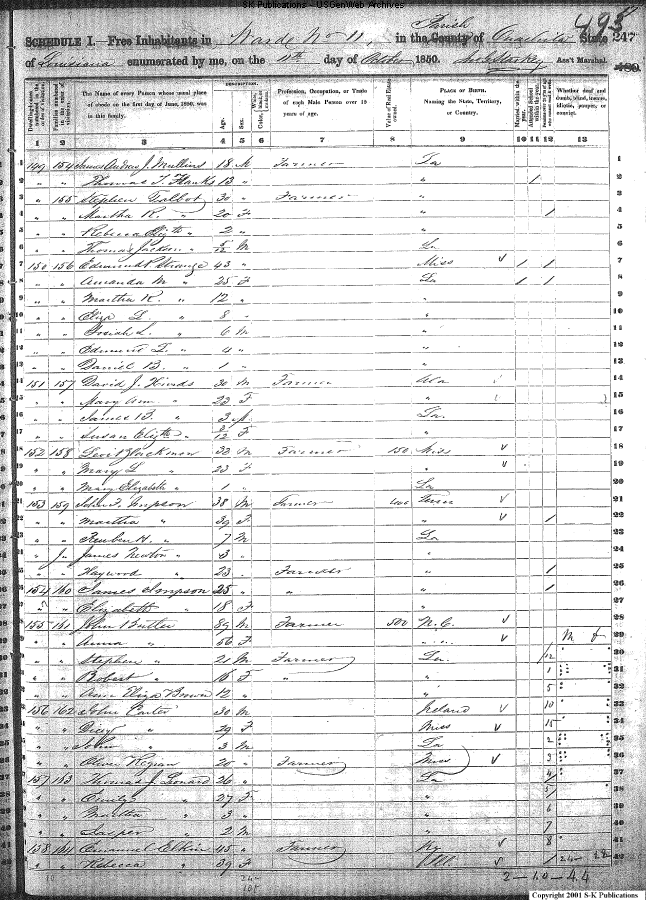 S-K Publications - USGenWeb Archives
493
SCHEDULE I.—Free Inhabitants in Warde No 11, in the County of Parish Ouachita State 247
of Louisiana enumerated by me, on the 11th day of 1850. Ass't Marshal. 480
Dwelling-houses numbered in the order of visitation.
Families numbered in the order of visitation.
The Name of every Person whose usual place of abode on the first day of June, 1850, was in this family.
DESCRIPTION.
Age.
Sex.
Color, White, black, or mulatto.
Profession, Occupation, or Trade of each Male Person over 15 years of age.
Value of Real Estate owned.
PLACE OF BIRTH.
Naming the State, Territory, or Country.
Married within the year.
Attended School within the year.
Persons over 20 y'rs of age who cannot read & write.
Whether deaf and dumb, blind, insane, idiotic, pauper, or convict.
1 2 3 4 5 6 7 8 9 10 11 12 13
1 149 154 James J. Mullins 18 M Farmer La 1
2 " " Thomas T. Hanks 13 " " 1 2
3 " 155 Stephen Talbot 30 " Farmer " 3
4 " " Martha R. " 20 F " 1 4
5 " " Rebecca Elizth " 2 " " 5
6 " " Thomas Jackson " /12 M La 6
7 150 156 Edmund Strange 43 " Miss √ 1 1 7
8 " " Amanda M " 25 F La 1 1 8
9 " " Martha R. " 12 " " 9
10 " " Eliza L. " 8 " " 10
11 " " Josiah L. " 6 M " 11
12 " " Edmund T. " 4 " " 12
13 " " Daniel B. " 1 " " 13
14 151 157 David J. Hinds 30 M Farmer Ala 14
15 " " Mary Ann " 22 F " 15
16 " " James B. " 3 M La. 16
17 " " Susan Elizth " /12 F " 17
18 152 158 Levi Hackmon 32 M Farmer 150 Miss √ 18
19 " " Mary L " 23 F " √ 19
20 " " Mary Elizabeth " 1 " La 20
21 153 159 John F. Impson 38 M Farmer 400 √ 21
22 " " Martha " 39 F " √ 1 22
23 " " Reuben H. " 7 M La 23
24 " " James Newton " 3 " " 24
25 " " Haywood " 23 Farmer " 1 25
26 154 160 James Impson 25 " " " 1 26
27 " " Elizabeth " 18 F " 27
28 155 161 John Butler 89 M Farmer 500 N.C. √ 28
29 " " Anna " 56 F " √ 29
30 " " Stephen " 21 M Farmer La. 30
31 " " Robert " 16 F " " 31
32 " " Ann Eliza Brown 12 " " 32
33 156 162 John Carter 30 M Ireland √ 33
34 " " " 29 F Miss √ 34
35 " " John " 3 M La 35
36 " " Oliver 20 " Farmer Miss √ 36
37 157 163 Thomas J. Leonard 26 " La 37
38 " " Emily " 27 F " 38
39 " " Martha " 3 " " 39
40 " " Jasper " 2 M " 40
41 158 164 Emanuel Elkin 45 " Farmer Ky √ 41
42 " " Rebecca " 39 F √ 42
2-10-44
Copyright 2001 S-K Publications